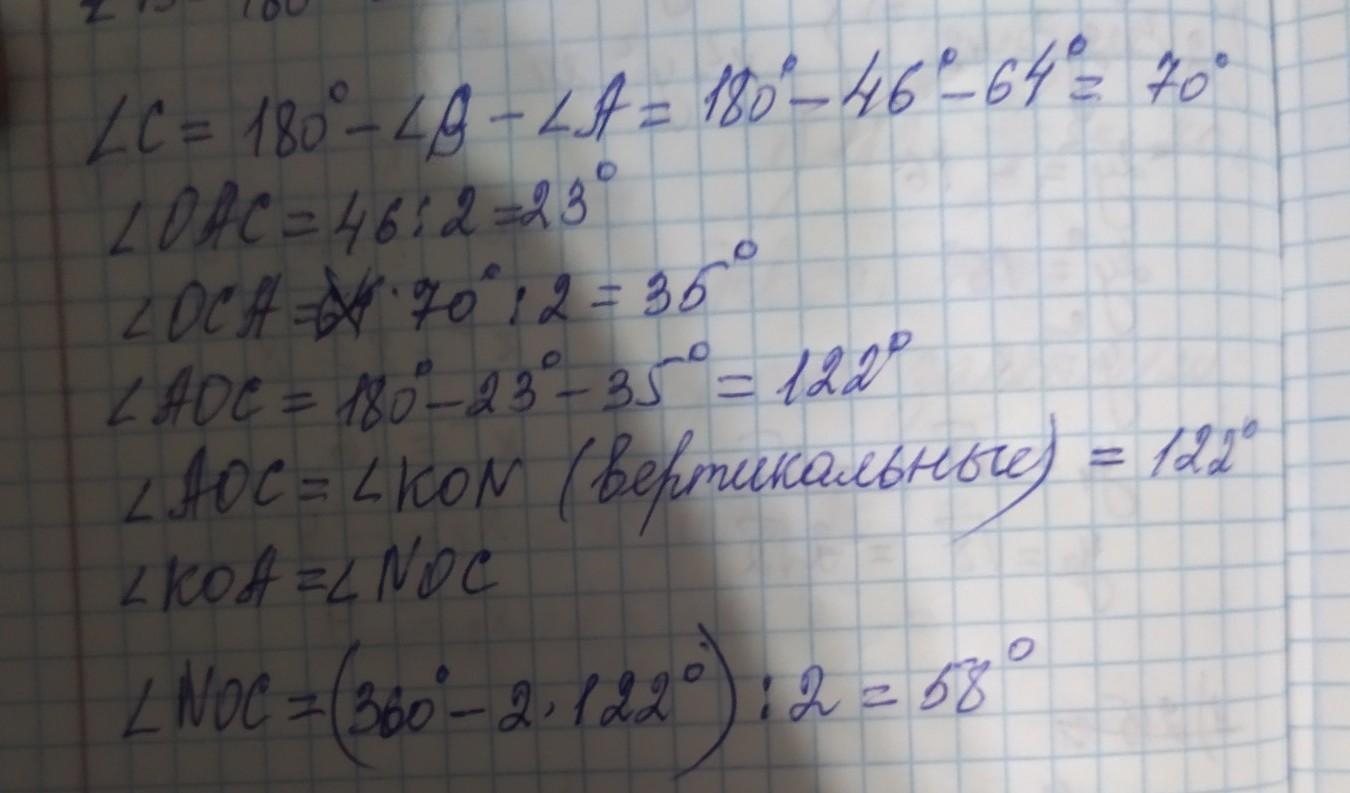 ∠C = 180° − ∠B − ∠A = 180° − 46° − 64° = 70°
∠OAC = 46 : 2 = 23°
∠OCA = 70° : 2 = 35°
∠AOC = 180° − 23° − 35° = 122°
∠AOC = ∠KON (вертикальные) = 122°
∠KOA = ∠NOC
∠NOC = (360° − 2 · 122°) : 2 = 58°